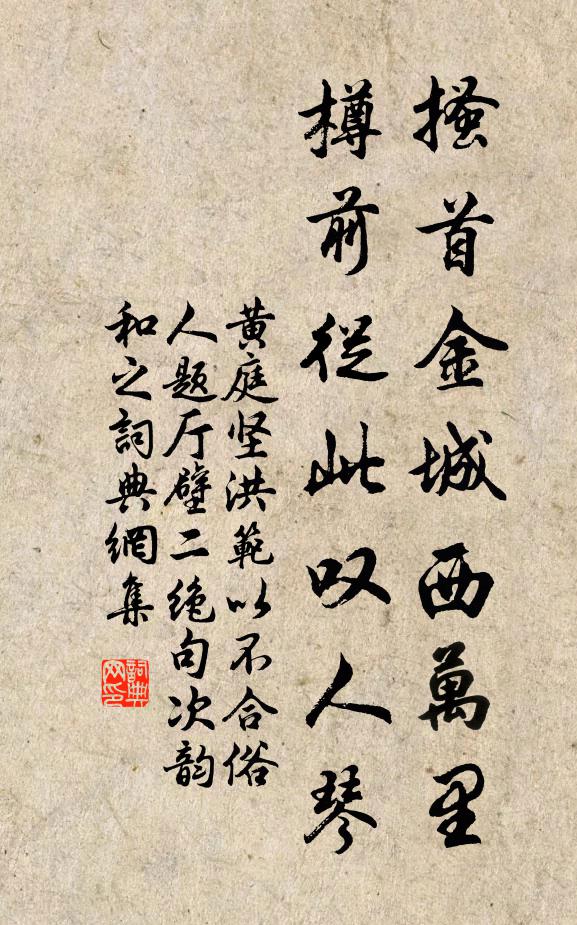 搔首金城西萬里
樽前從此叹人琴
黄庭坚洪範以不合俗
人题厅壁二绝句次韵
和之詞典網集
詞典网印